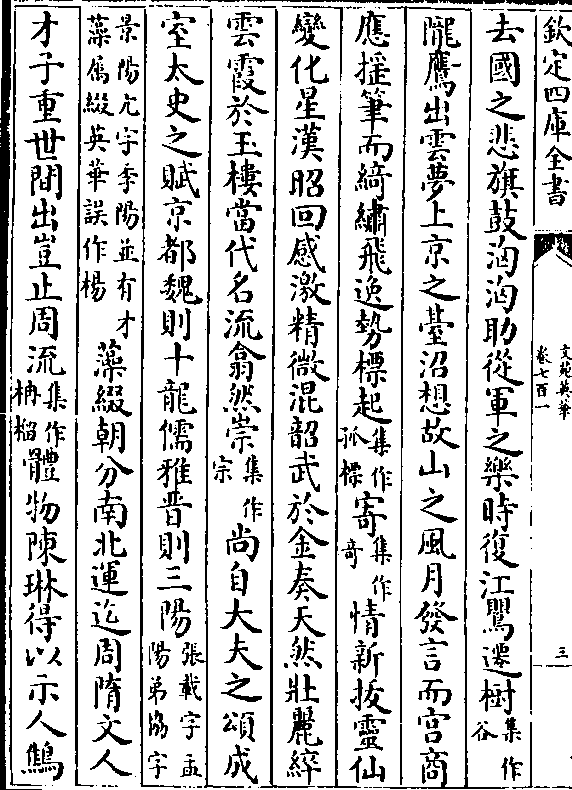 欽定四庫全書
文苑英華
卷七百一
三
去國之悲旗鼓洶洶助從軍之樂時復江鸎遷樹集作谷
隴鴈出雲夢上京之臺沼想故山之風月發言而宫商
應揺筆而綺繡飛逸勢標起集作孤標寄集作奇情新拔靈仙
變化星漢昭回感激精微混韶武於金奏天然壯麗綷
雲霞於玉樓當代名流翕然崇集作宗尚自大夫之頌成
室太史之賦京都魏則十龍儒雅晋則三陽張載字孟陽弟協字
景陽亢字季陽並有才藻属綴英華誤作楊藻綴朝分南北運迄周隋文人
才子重世間出豈止周流集作柟榴體物陳琳得以示人鷦